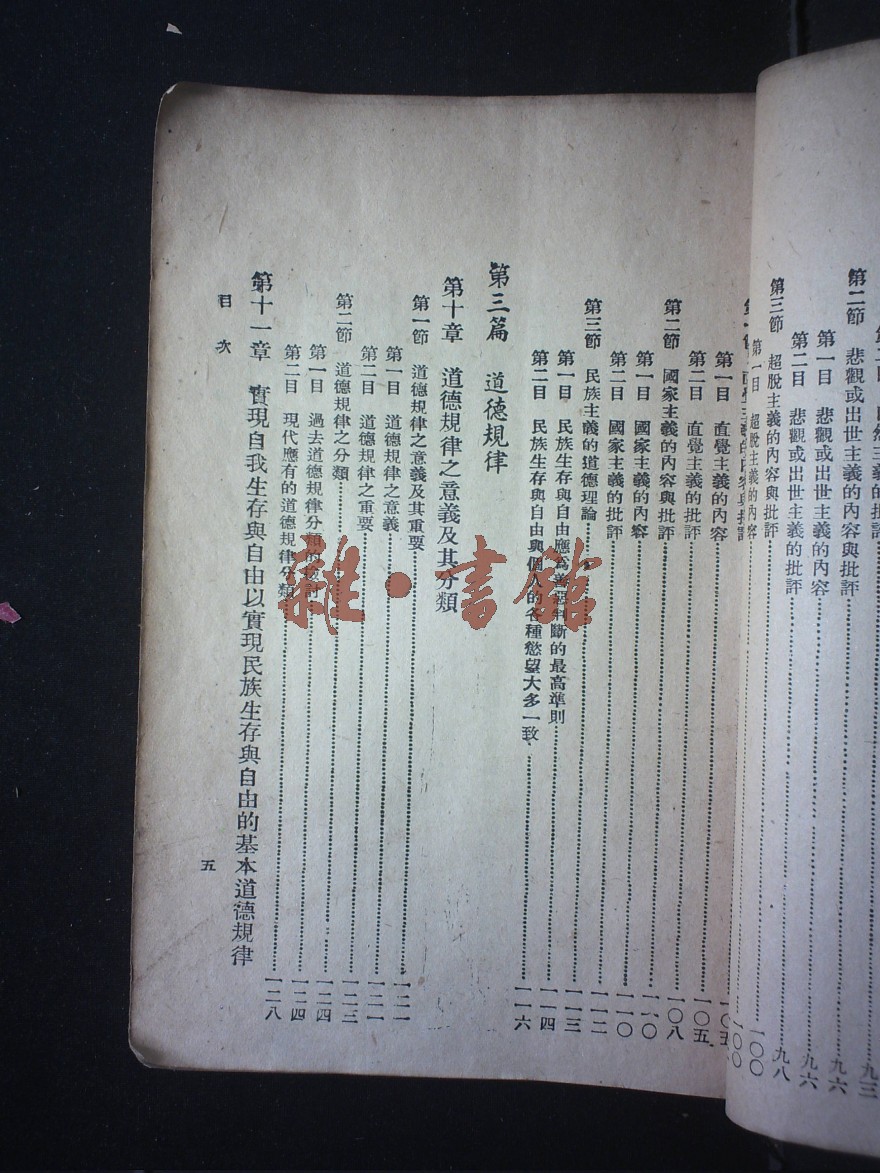 第二節 悲觀或出世主義的內容與批評……九六
第一目 悲觀或出世主義的內容……九六
第二目 悲觀或出世主義的批評……九八
第三節 超脫主義的內容與批評……一〇〇
第一目 超脫主義的內容……一〇〇
第一目 直覺主義的內容……一〇五
第二目 直覺主義的批評……一〇八
第二節 國家主義的內容與批評……一一〇
第一目 國家主義的內容……一一〇
第二目 國家主義的批評……一一二
第三節 民族主義的道德理論……一一三
第一目 民族生存與自由應為善惡判斷的最高準則……一一四
第二目 民族生存與自由與個人的各種慾望大多一致……一一六
第三篇 道德規律
第十章 道德規律之意義及其分類
第一節 道德規律之意義及其重要……一二一
第一目 道德規律之意義……一二一
第二目 道德規律之重要……一二三
第二節 道德規律之分類……一二四
第一目 過去道德規律分類的檢討……一二四
第二目 現代應有的道德規律分類……一二八
第十一章 實現自我生存與自由以實現民族生存與自由的基本道德規律
目次
五
雜·書館